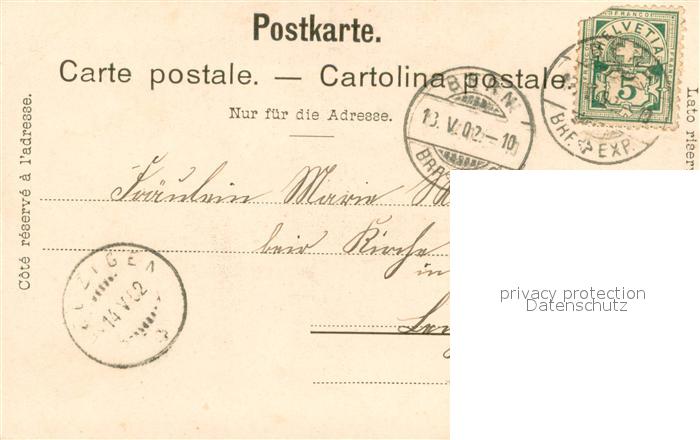 Postkarte.
Carte postale. — Cartolina postale.
Nur für die Adresse.
Côté réservé à l'adresse.
Lato riserv
FRANCO
HELVETIA
5
BERN
13. V. 02. – 10
BRF. EXP.
BRF. EXP.
14 V 02
Fräulein Marie
beir Kirche
in
privacy protection
Datenschutz